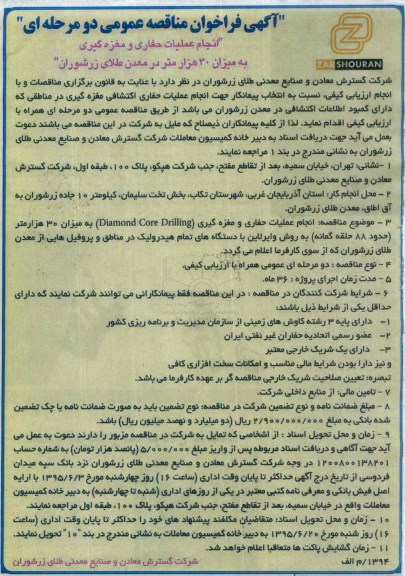 "آگهی فراخوان مناقصه عمومی دو مرحله ای"
"انجام عملیات حفاری و مغزه گیری
به میزان ۳۰ هزار متر در معدن طلای زرشوران"
ZARSHOURAN
شرکت گسترش معادن و صنایع معدنی طلای زرشوران در نظر دارد با عنایت به قانون برگزاری مناقصات و با
انجام ارزیابی کیفی، نسبت به انتخاب پیمانکار جهت انجام عملیات حفاری اکتشافی مغزه گیری در مناطقی که
دارای کمبود اطلاعات اکتشافی در معدن زرشوران می باشد از طریق مناقصه عمومی دو مرحله ای همراه با
ارزیابی کیفی اقدام نماید. لذا از کلیه پیمانکاران ذیصلاح که مایل به شرکت در این مناقصه می باشند دعوت
بعمل می آید جهت دریافت اسناد به دبیر خانه کمیسیون معاملات شرکت گسترش معادن و صنایع معدنی طلای
زرشوران به نشانی مندرج در بند ۱ مراجعه نمایند.
۱-نشانی: تهران، خیابان سمیه، بعد از تقاطع مفتح، جنب شرکت هپکو، پلاک ۱۰۰، طبقه اول، شرکت گسترش
معادن و صنایع معدنی طلای زرشوران.
۲- محل انجام کار: استان آذربایجان غربی، شهرستان تکاب، بخش تخت سلیمان، کیلومتر ۱۰ جاده زرشوران به
آق اطاق، معدن طلای زرشوران.
۳ - موضوع مناقصه: انجام عملیات حفاری و مغزه گیری (Diamond Core Drilling) به میزان ۳۰ هزارمتر
(حدود ۸۸ حلقه گمانه) به روش وایرلاین با دستگاه های تمام هیدرولیک در مناطق و پروفیل هایی از معدن
طلای زرشوران که از سوی کارفرما اعلام می گردد.
۴ - نوع مناقصه: دو مرحله ای عمومی همراه با ارزیابی کیفی.
۵- مدت زمان اجرای پروژه: ۳۶ ماه.
۶ - شرایط شرکت کنندگان در مناقصه: در این مناقصه فقط پیمانکارانی می توانند شرکت نمایند که دارای
حداقل یکی از شرایط ذیل باشند:
۱- دارای پایه ۳ رشته کاوش های زمینی از سازمان مدیریت و برنامه ریزی کشور
۲- عضو رسمی اتحادیه حفاران غیر نفتی ایران
۳- دارای یک شریک خارجی معتبر
و نیز دارا بودن شرایط مالی مناسب و امکانات سخت افزاری کافی
تبصره: تعیین صلاحیت شریک خارجی مناقصه گر بر عهده کارفرما می باشد.
۷ - تامین مالی: از منابع داخلی شرکت.
۸ - مبلغ ضمانت نامه و نوع تضمین شرکت در مناقصه: نوع تضمین باید به صورت ضمانت نامه یا چک تضمین
شده بانکی به مبلغ ۲/۹۰۰/۰۰۰/۰۰۰ ریال (دو میلیارد و نهصد میلیون ریال) باشد.
۹ - زمان و محل تحویل اسناد: از اشخاصی که تمایل به شرکت در مناقصه مزبور را دارند دعوت به عمل می
آید جهت آگاهی و دریافت اسناد مربوطه پس از واریز مبلغ ۵/۰۰۰/۰۰۰ (پانصد هزار تومان) به شماره حساب
در وجه شرکت گسترش معادن و صنایع معدنی طلای زرشوران نزد بانک سپه میدان
فردوسی از تاریخ درج آگهی حداکثر تا پایان وقت اداری (ساعت ۱۶) روز چهارشنبه مورخ ۱۳۹۵/۶/۳ با ارایه
اصل فیش بانکی و معرفی نامه کتبی معتبر در یکی از روزهای اداری (شنبه تا چهارشنبه) به دبیر خانه کمیسیون
معاملات واقع در خیابان سمیه، بعد از تقاطع مفتح، جنب شرکت هپکو، پلاک ۱۰۰، طبقه اول، مراجعه نمایند.
۱۰ - زمان و محل تحویل اسناد: متقاضیان مکلفند پیشنهاد های خود را حداکثر تا پایان وقت اداری (ساعت
۱۶) روز شنبه مورخ ۱۳۹۵/۶/۲۰ به دبیر خانه کمیسیون معاملات به نشانی مندرج در بند "۱۰" تحویل نمایند.
۱۱ - زمان گشایش پاکت ها متعاقبا اعلام خواهد شد.
شرکت گسترش معادن و صنایع معدنی طلای زرشوران
۱۳۹۴/م الف